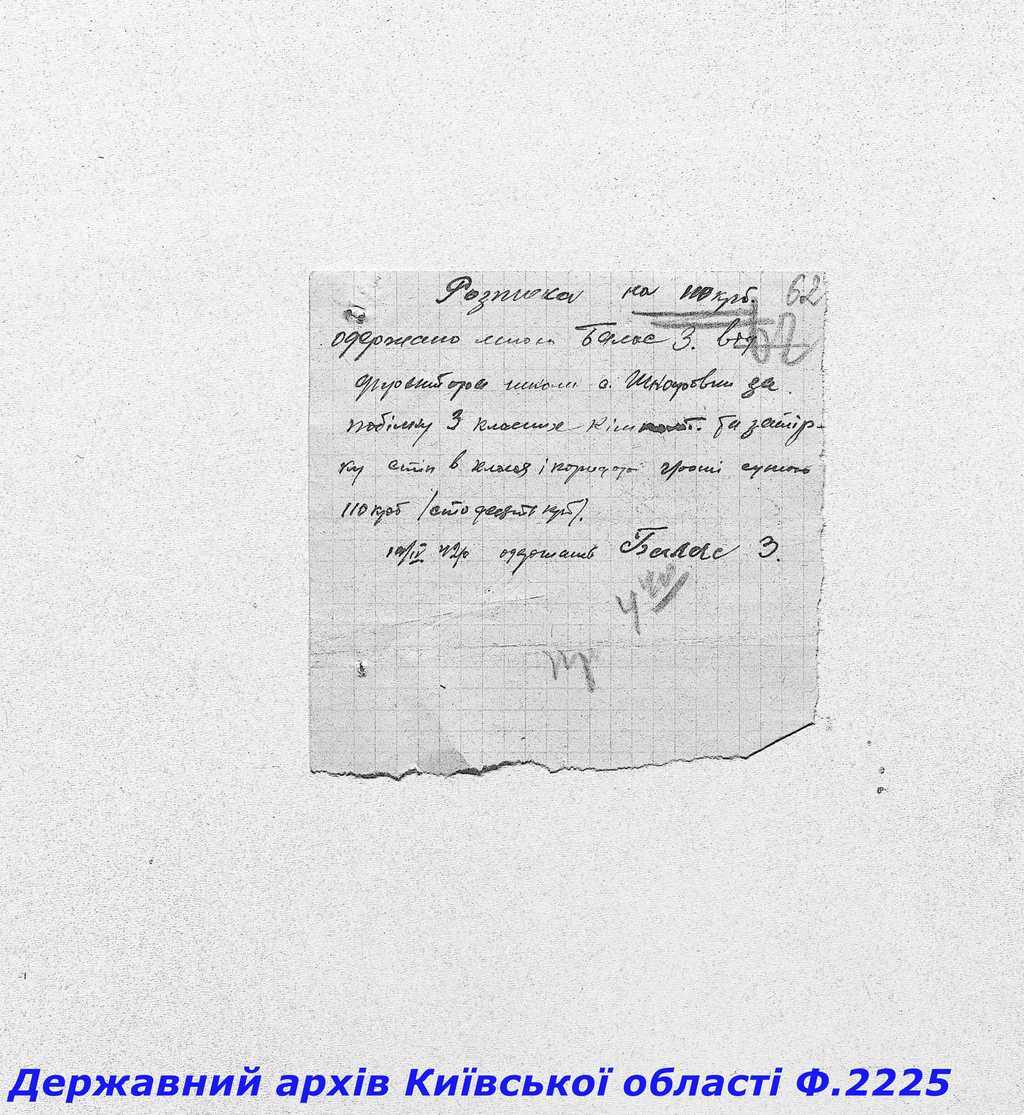 Розписка на 110 крб. 62
одержано мною Балас З. від
директора школи с. Шкарівки за
побілку 3 класних кімнат. та затір-
ку стін в класах і коридорі гроші сумою
110 крб /сто десять крб/.
IV 42р одержав Балас З.
Державний архів Київської області Ф.2225